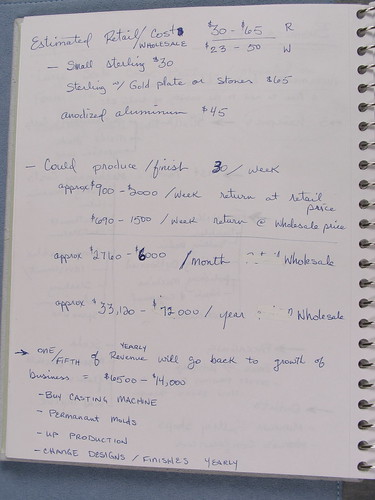 Estimated Retail/Costs $30 - $65 R
WHOLESALE $23 - 50 W
- Small sterling $30
Sterling w/ Gold plate or stones $65
anodized aluminum $45
- Could produce/finish 30/week
approx $900 - $2000/week return at retail
price
$690 - 1500/week return @ wholesale price
approx $2760 - $6000 /month " " Wholesale
approx $33,120 - $72000/year " " Wholesale
→ ONE/FIFTH of YEARLY Revenue will go back to growth of
business = $6500 - $14,000
- BUY CASTING MACHINE
- Permanant Molds
- UP PRODUCTION
- CHANGE DESIGNS/FINISHES YEARLY